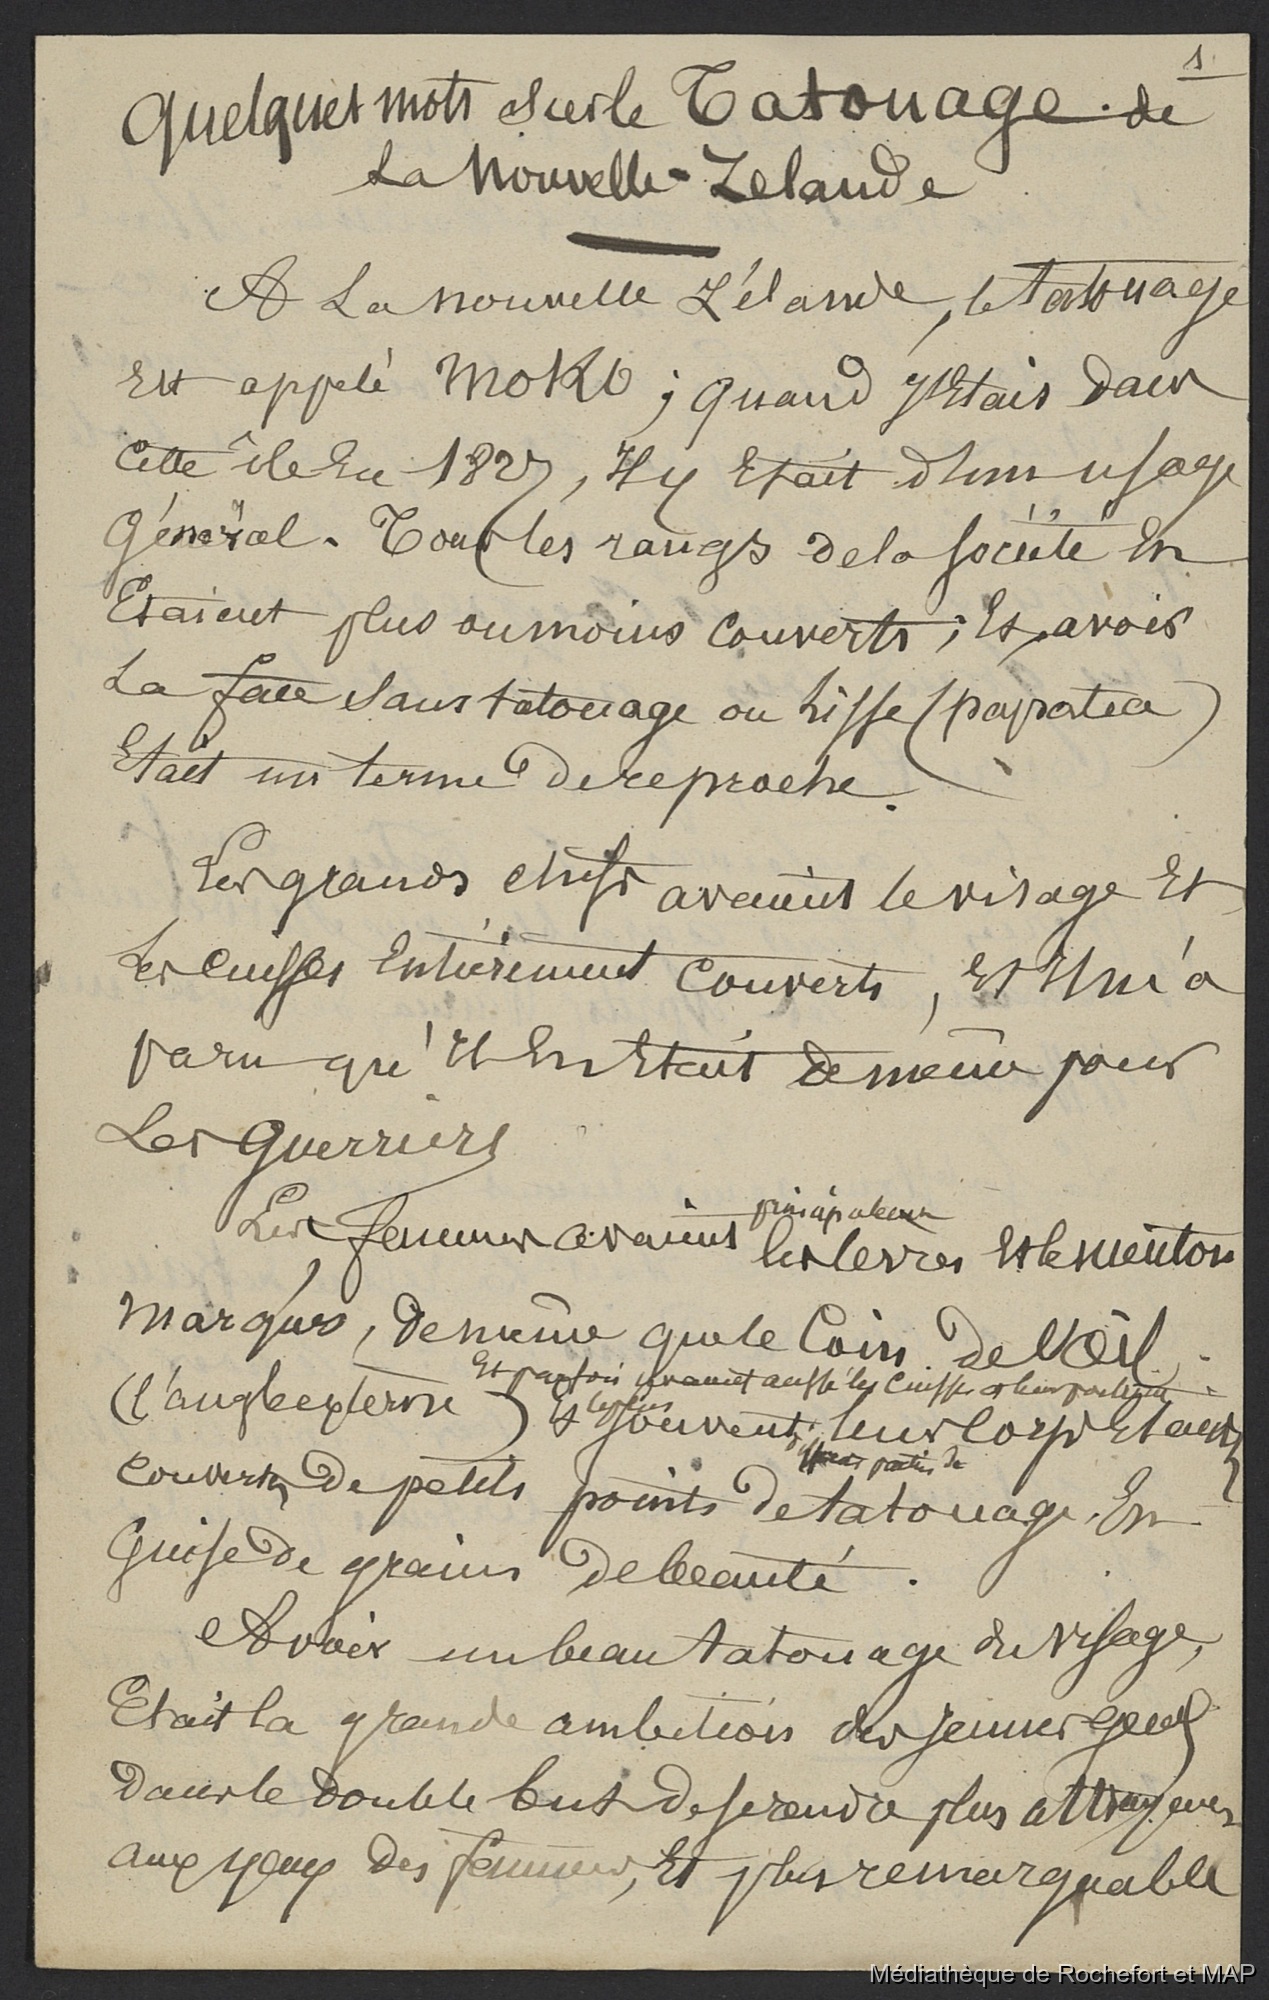 1
Quelques mots sur le Tatouage de
La Nouvelle-Zelande
A La nouvelle Zélande, le tatouage
Est appelé MOKO ; quand j'Etais dans
Cette île En 1827, Il y Etait d'un usage
Général. Tous les rangs de la société En
Etaient plus ou moins couverts ; Et avoir
La face sans tatouage ou lisse (papatea)
Etait un terme de reproche.
Les grands chefs avaient le visage Et
Les cuisses Entièrement couverts, Et Il m'a
paru qu'Il En Etait de même pour
Les Guerriers
Les femmes avaient principalement
les lèvres Et le menton
marqués, de même que le Coin de l'Œil
(l'angle externe) Et souvent leur corps Etait
Et parfois avaient aussi les cuisses
parties de
couvert de petits points de tatouage En
Guise de grains de beauté.
Avoir un beau tatouage du visage,
Etait la grande ambition des jeunes gens
dans le double but de se rendre plus attrayens
aux yeux des femmes, Et plus remarquable
Médiathèque de Rochefort et MAP